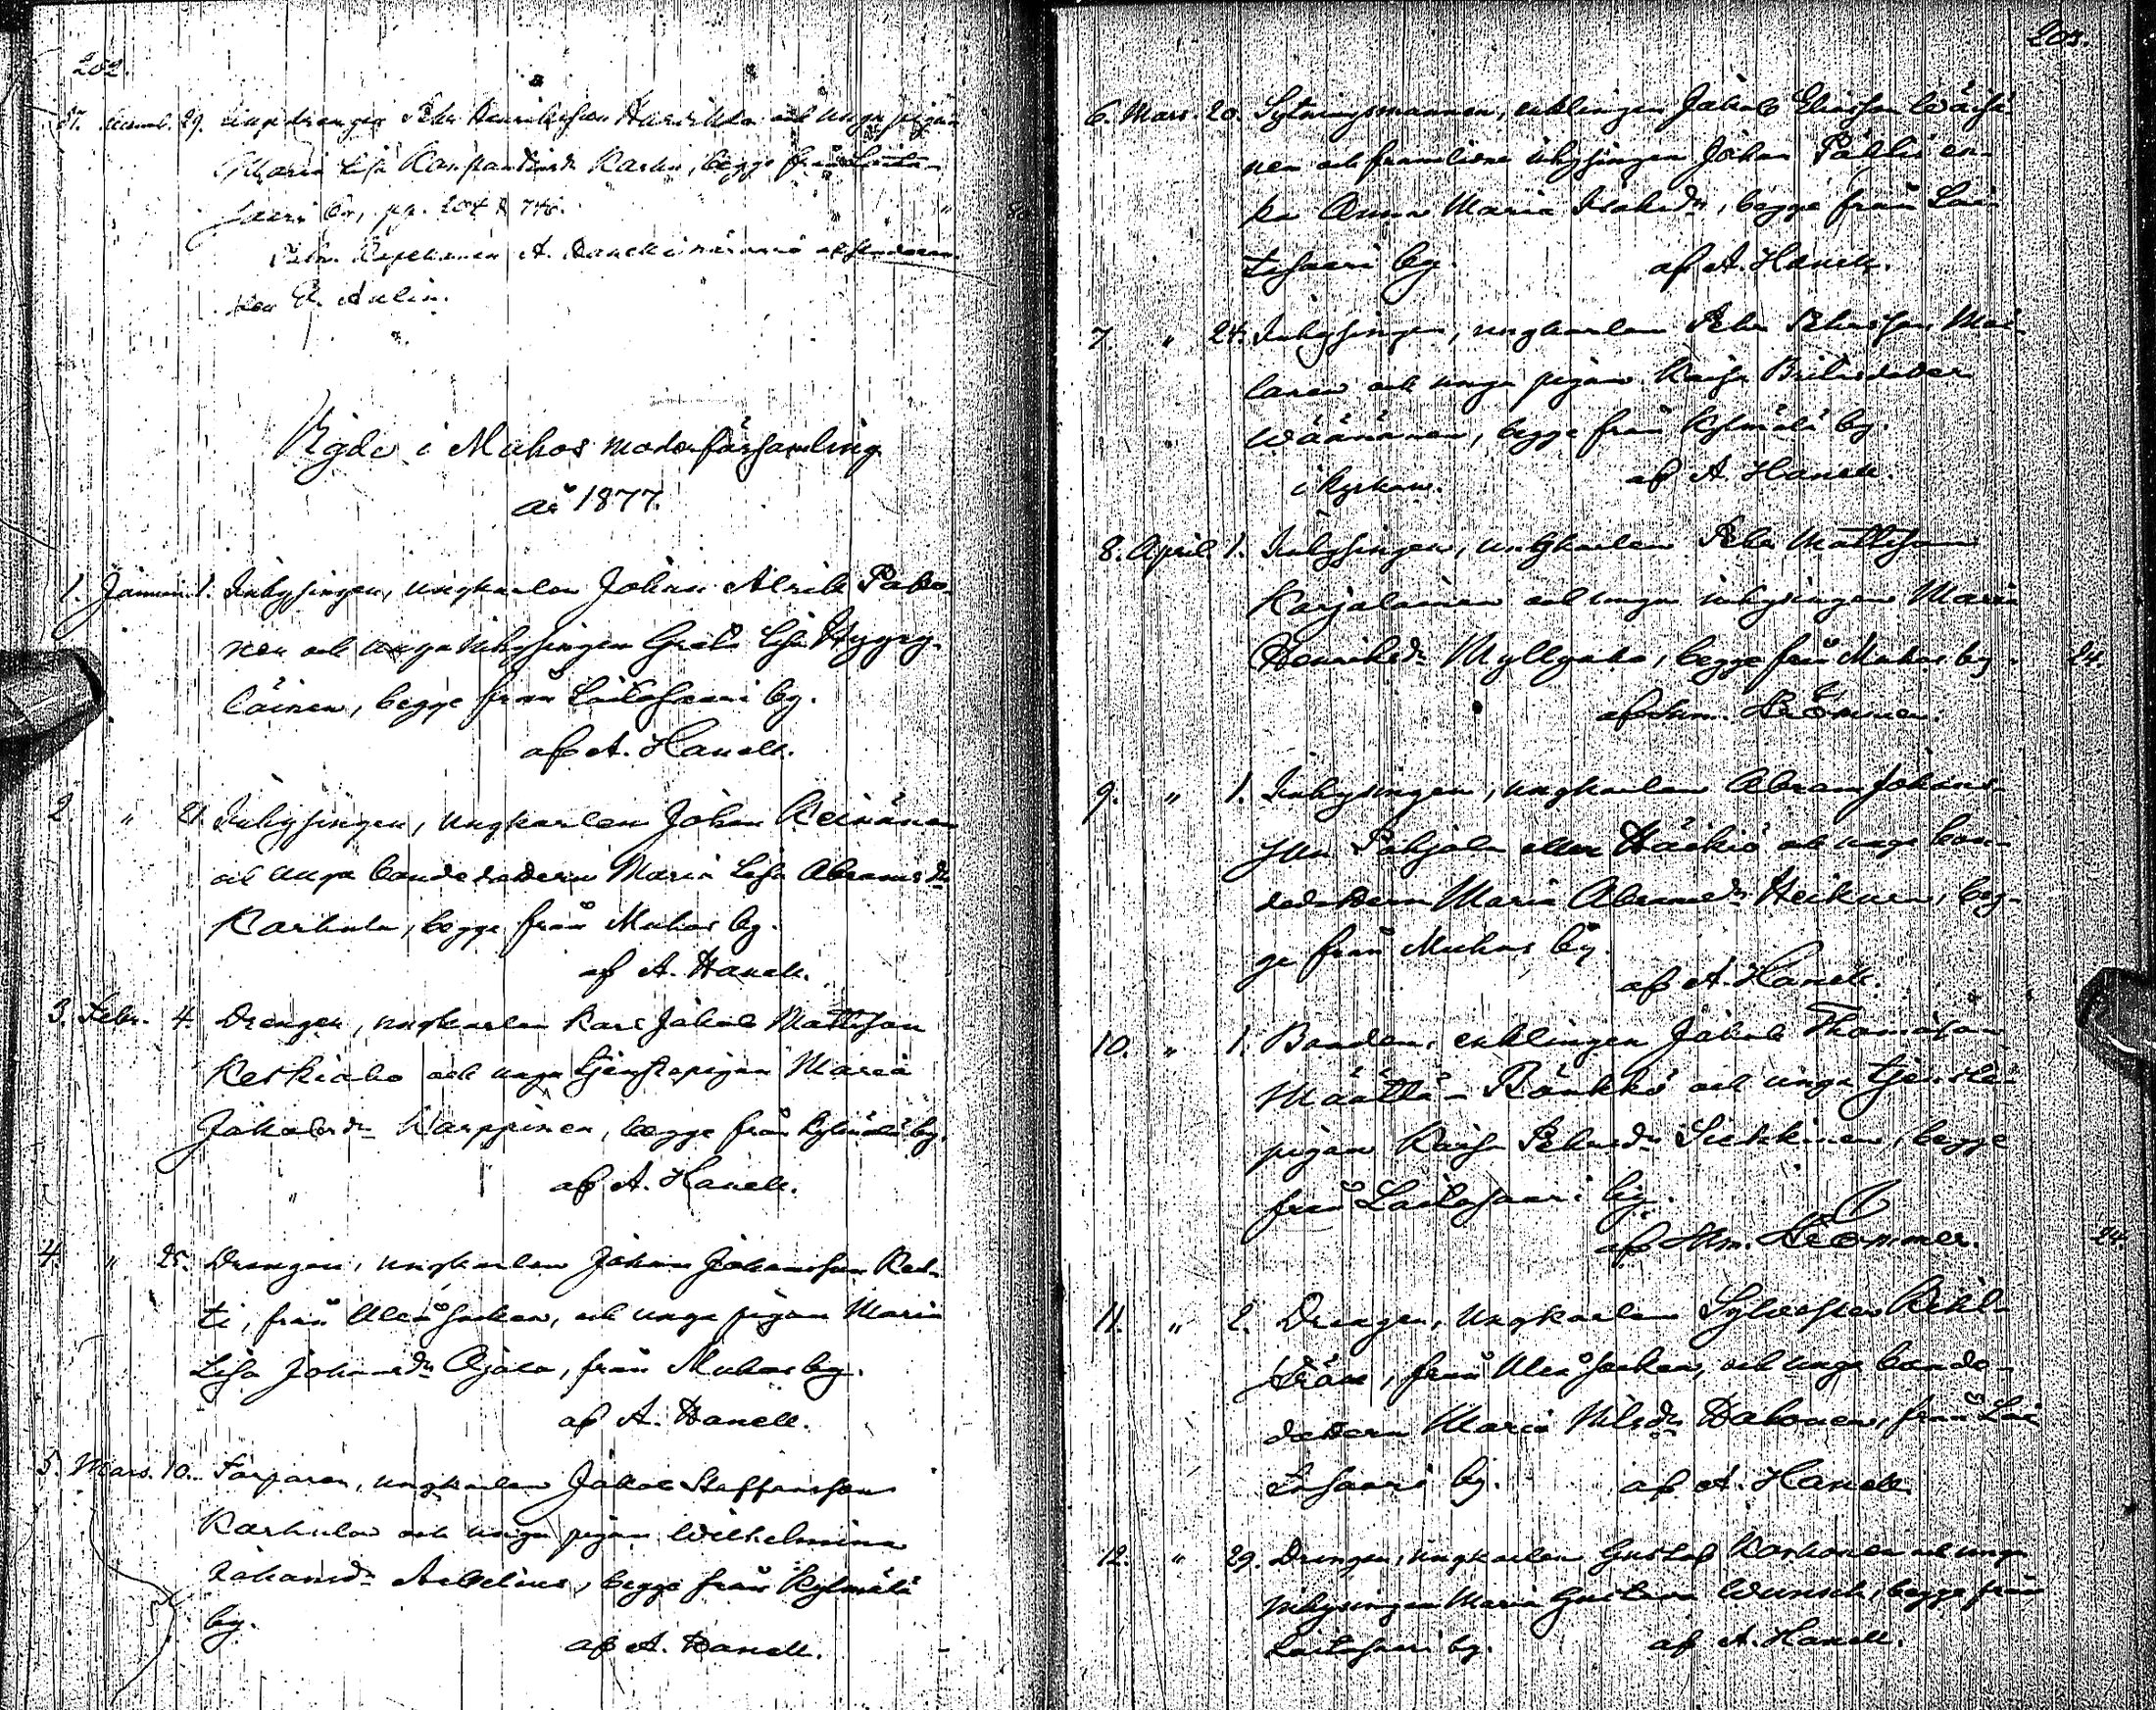 202.
57. Decemb. 29. Unga drengen Petter Henriksson Haurukka och unga pigan
Maria Lisa Karhu, begge från Laito-
saari by, pg.
A. Hanell i närvaro af
E. Aulin.
Vigde i Muhos moderförsamling
år 1877.
1. Januari 1. Inhysingen, ungkarlen Johan Alrik Pako-
nen och unga inhysingen Greta Lisa Hyyry-
läinen, begge från Laitosaari by.
af A. Hanell.
2. " 21. Inhysingen, ungkarlen Johan Keinänen
och unga bondedottern Maria Lisa Abramsdr
Karhula, begge från Muhos by.
af A. Hanell.
3. Febr. 4. Drengen, ungkarlen Karl Jakob Mattsson
Keskiaho och unga tjenstepigan Maria
Jakobsdr Karppinen, begge från Kylmälä by.
af A. Hanell.
4. " 25. Drengen, ungkarlen Johan Johansson
ti, från Uleå socken, och unga pigan Maria
Lisa Johansdr Ojala, från Muhos by.
af A. Hanell.
5. Mars. 10. Torparen, ungkarlen Jakob Staffansson
Karhula och unga pigan Wilhelmina
Johansdr Arvelius, begge från Kylmälä
by.
af A. Hanell.
203.
6. Mars. 20. Sytningsmannen, enklingen Jakob Eliasson
nen och framlidne inhysingen Johan Pälli's en-
ka Anna Maria Isaksdr, begge från Lai-
tosaari by. af A. Hanell.
7. " 24. Inhysingen, ungkarlen Petter Pettersson Moi-
lanen och unga pigan Kaisa Brita dotter
Wäänänen, begge från Kylmälä by.
i kyrkan. af A. Hanell.
8. April 1. Inhysingen, ungkarlen Petter Mattsson
Karjalainen och unga inhysingen Maria
Henriksdr Myllyaho, begge från Muhos by. 24.
af Hm. Brommer.
9. " 1. Inhysingen, ungkarlen Abram Johans-
son Pohjola eller Häikiö och unga bon-
dedottern Maria Abramsdr Heikura, beg-
ge från Muhos by.
af A. Hanell.
10. " 1. Bonden, enklingen Jakob Thomasson
Määttä-Rönkkö och unga tjenste-
pigan Kaisa Pettersdr Siekkinen, begge
från Laitosaari by.
af Hm. Brommer. 24.
11. " 2. Drengen, ungkarlen Sylvester
från Uleå socken, och unga bonde-
dottern Maria Nilsdr Hakonen, från Lai-
tosaari by. af A. Hanell.
12. " 29. Drengen, ungkarlen Gustaf Korhonen och unga
inhysingen Maria Gustava Wunsch, begge från
Laitosaari by. af A. Hanell.